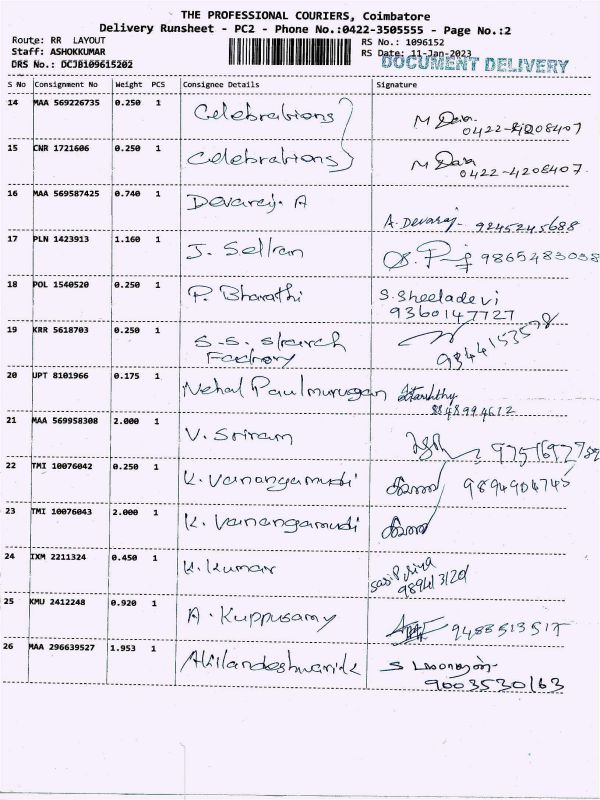 THE PROFESSIONAL COURIERS, Coimbatore
Delivery Runsheet - PC2 - Phone No.:0422-3505555 - Page No.:2
Route: RR LAYOUT
RS No.: 1096152
Staff: ASHOKKUMAR
RS Date: 11-Jan-2023
DRS No.: DCJB109615202
DOCUMENT DELIVERY
S No Consignment No Weight PCS Consignee Details Signature
14 MAA 569226735 0.250 1 Celebrations M
15 CNR 1721606 0.250 1 Celebrations M
0422-4208407
16 MAA 569587425 0.740 1 Devaraj. A
A. Devaraj- 9245245688
17 PLN 1423913 1.160 1 J. Selfran 9865483038
18 POL 1540520 0.250 1 P. Bharathi S. Sheeladevi
9360147727
19 KRR 5618703 0.250 1 S.S. Starch
Factory 9344153578
20 UPT 8101966 0.175 1 Nehal Paulmurugan
8848994612
21 MAA 569958308 2.000 1 V. Sriram
22 TMI 10076042 0.250 1 K. Vanangamudi 9894904745
23 TMI 10076043 2.000 1 K. Vanangamudi
24 IXM 2211324 0.450 1 K. Kumar Sasi Priya
25 KMU 2412248 0.920 1 A. Kuppusamy 9488513517
26 MAA 296639527 1.953 1 Akilandeshwari.k S
9003530163